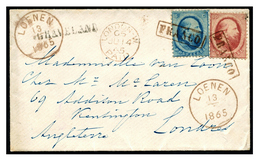 LOENEN
13
1865
'S GRAVELAND
FRANCO
FRANCO
LOENEN
13
1865
Mademoiselle van Loon
Chez Mr McLaren
69 Addison Road
Kensington
Angleterre Londres